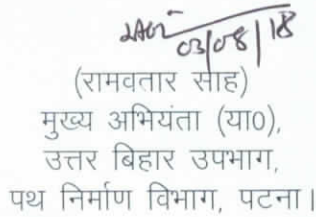 03/08/18
(रामवतार साह)
मुख्य अभियंता (या0),
उत्तर बिहार उपभाग,
पथ निर्माण विभाग, पटना।